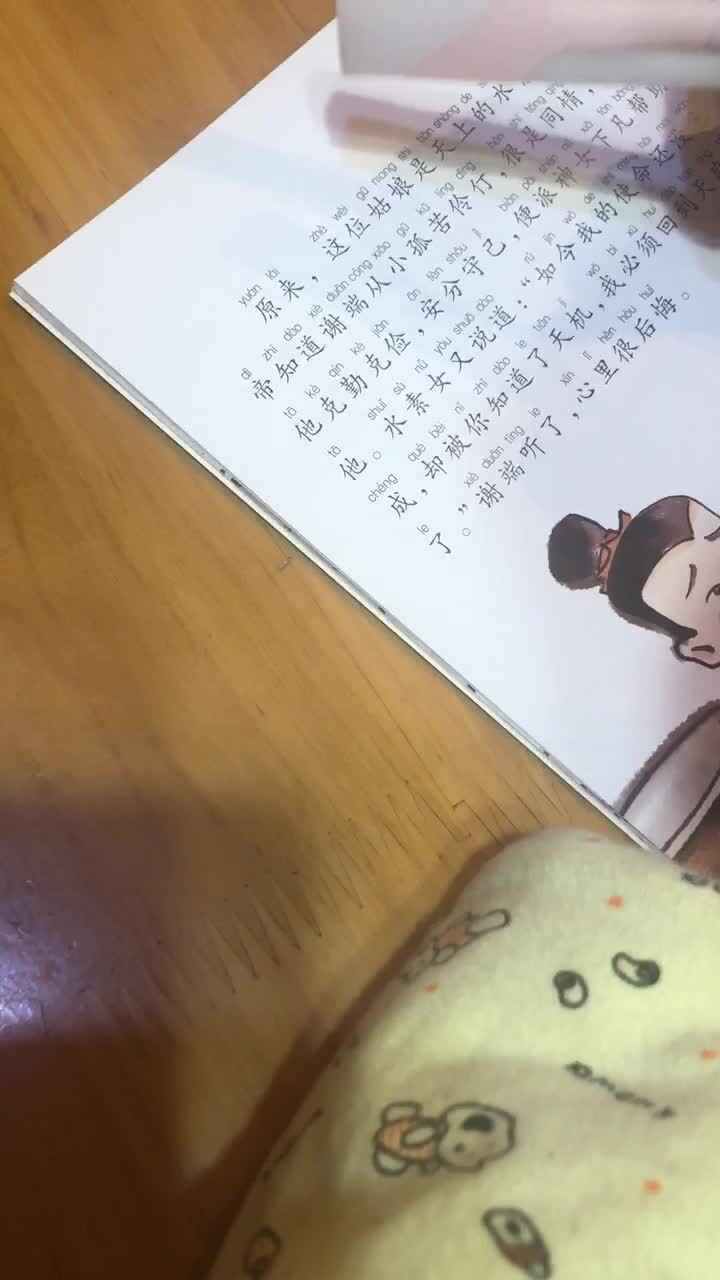 yuán lái zhè wèi gū niang shì tiān shàng de
原来，这位姑娘是天上的水
dì zhī dào xiè duān cóng xiǎo gū kǔ líng dīng hěn shì tóng qíng
帝知道谢端从小孤苦伶仃，很是同情，
tā kè qín kè jiǎn ān fèn shǒu jǐ biàn pài shén nǚ xià fán bāng
他克勤克俭，安分守己，便派神女下凡帮助
tā shuǐ sù nǚ yòu shuō dào rú jīn wǒ de shǐ mìng hái
他。水素女又说道：“如今我的使命还没
chéng què bèi nǐ zhī dào le tiān jī wǒ bì xū huí dào tiān
成，却被你知道了天机，我必须回到天
le xiè duān tīng le xīn lǐ hěn hòu huǐ
了。”谢端听了，心里很后悔。